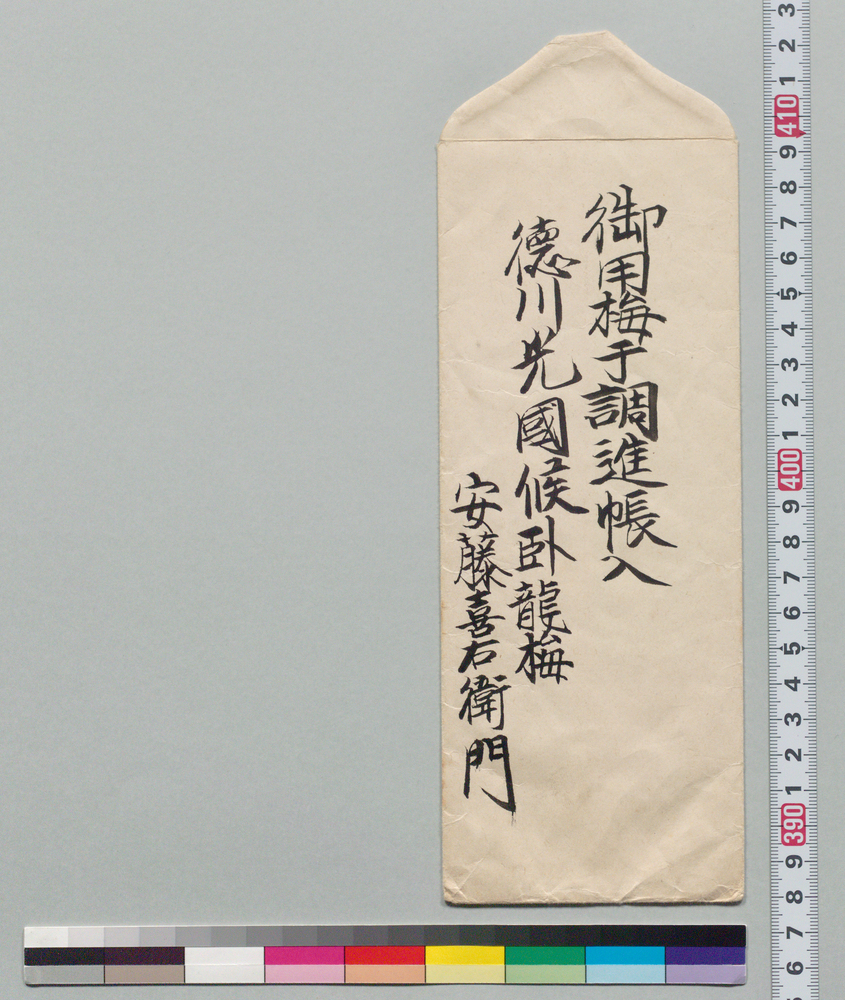 御用梅干調進帳入
徳川光國候卧龍梅
安藤喜右衛門
3 2 1 410 9 8 7 6 5 4 3 2 1 400 9 8 7 6 5 4 3 2 1 390 9 8 7 6